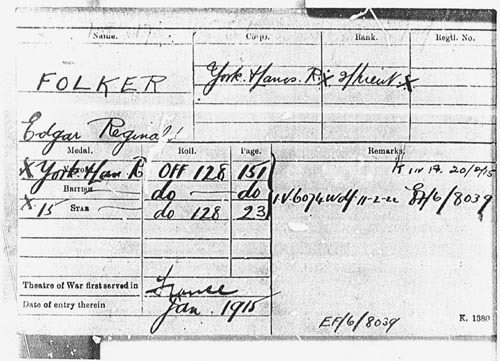 Name. Corps. Rank. Regtl. No.
FOLKER York. & Lancs. R. X 2/Lieut X
Edgar Reginald
Medal. Roll. Page. Remarks.
X York & Lan R OFF 128 151 K 1 V 17. 20/2/15
BRITISH do do
X 15 STAR do 128 23 IV. 6074 Wdf 11-2-22 EF/6/8039
Theatre of War first served in France
Date of entry therein Jan. 1915
EF/6/8039 K. 1380